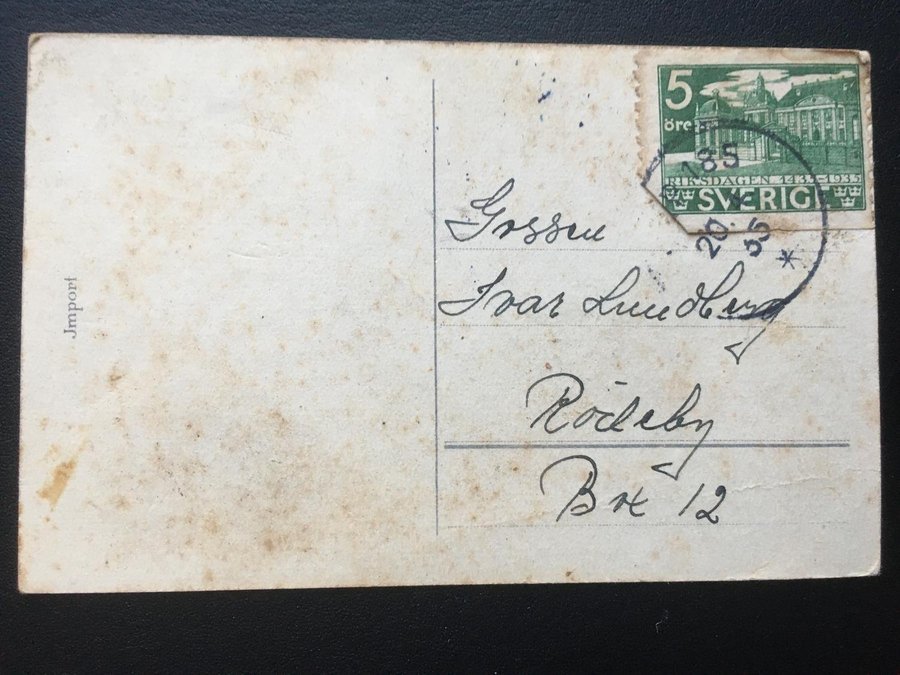 5
öre
RIKSDAGEN 1435-1935
SVERIGE
185
20.
35
*
Gossen
Ivar Lundberg
Rödeby
Box 12
Jmport